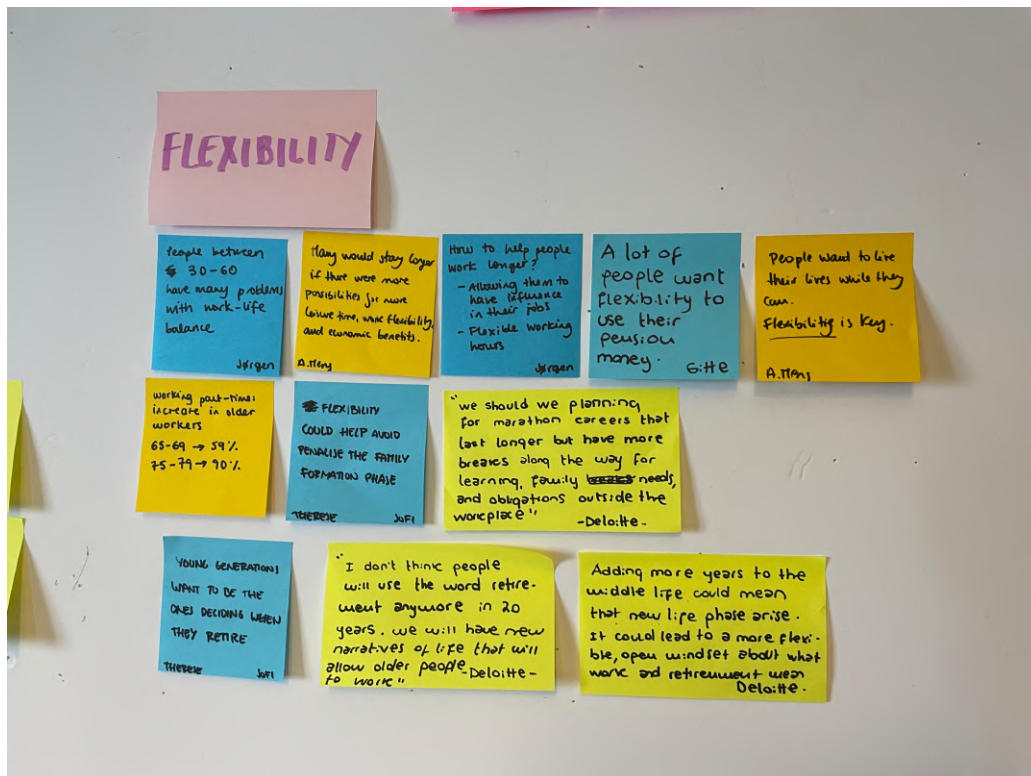 FLEXIBILITY
People between
30-60
have many problems
with work-life
balance
Jørgen
Many would stay longer
if there were more
possibilities for more
leisure time, work flexibility,
and economic benefits.
A.Meng
How to help people
work longer?
- Allowing them to
have influence
in their jobs
- Flexible working
hours
Jørgen
A lot of
people want
flexibility to
use their
pension
money.
Gitte
People want to live
their lives while they
can.
Flexibility is key.
A.Meng
working part-time:
increase in older
workers
65-69 → 59%
75-79 → 90%
FLEXIBILITY
COULD HELP AVOID
PENALISE THE FAMILY
FORMATION PHASE
THERESE SOFI
"we should we planning
for marathon careers that
last longer but have more
breaks along the way for
learning, family breaks needs,
and obligations outside the
workplace"
-Deloitte-
YOUNG GENERATIONS
WANT TO BE THE
ONES DECIDING WHEN
THEY RETIRE
THERESE SOFI
"I don't think people
will use the word retire-
ment anymore in 20
years. we will have new
narratives of life that will
allow older people -Deloitte-
to work"
Adding more years to the
middle life could mean
that new life phase arise.
It could lead to a more flexi-
ble, open mindset about what
work and retirement mean
Deloitte.